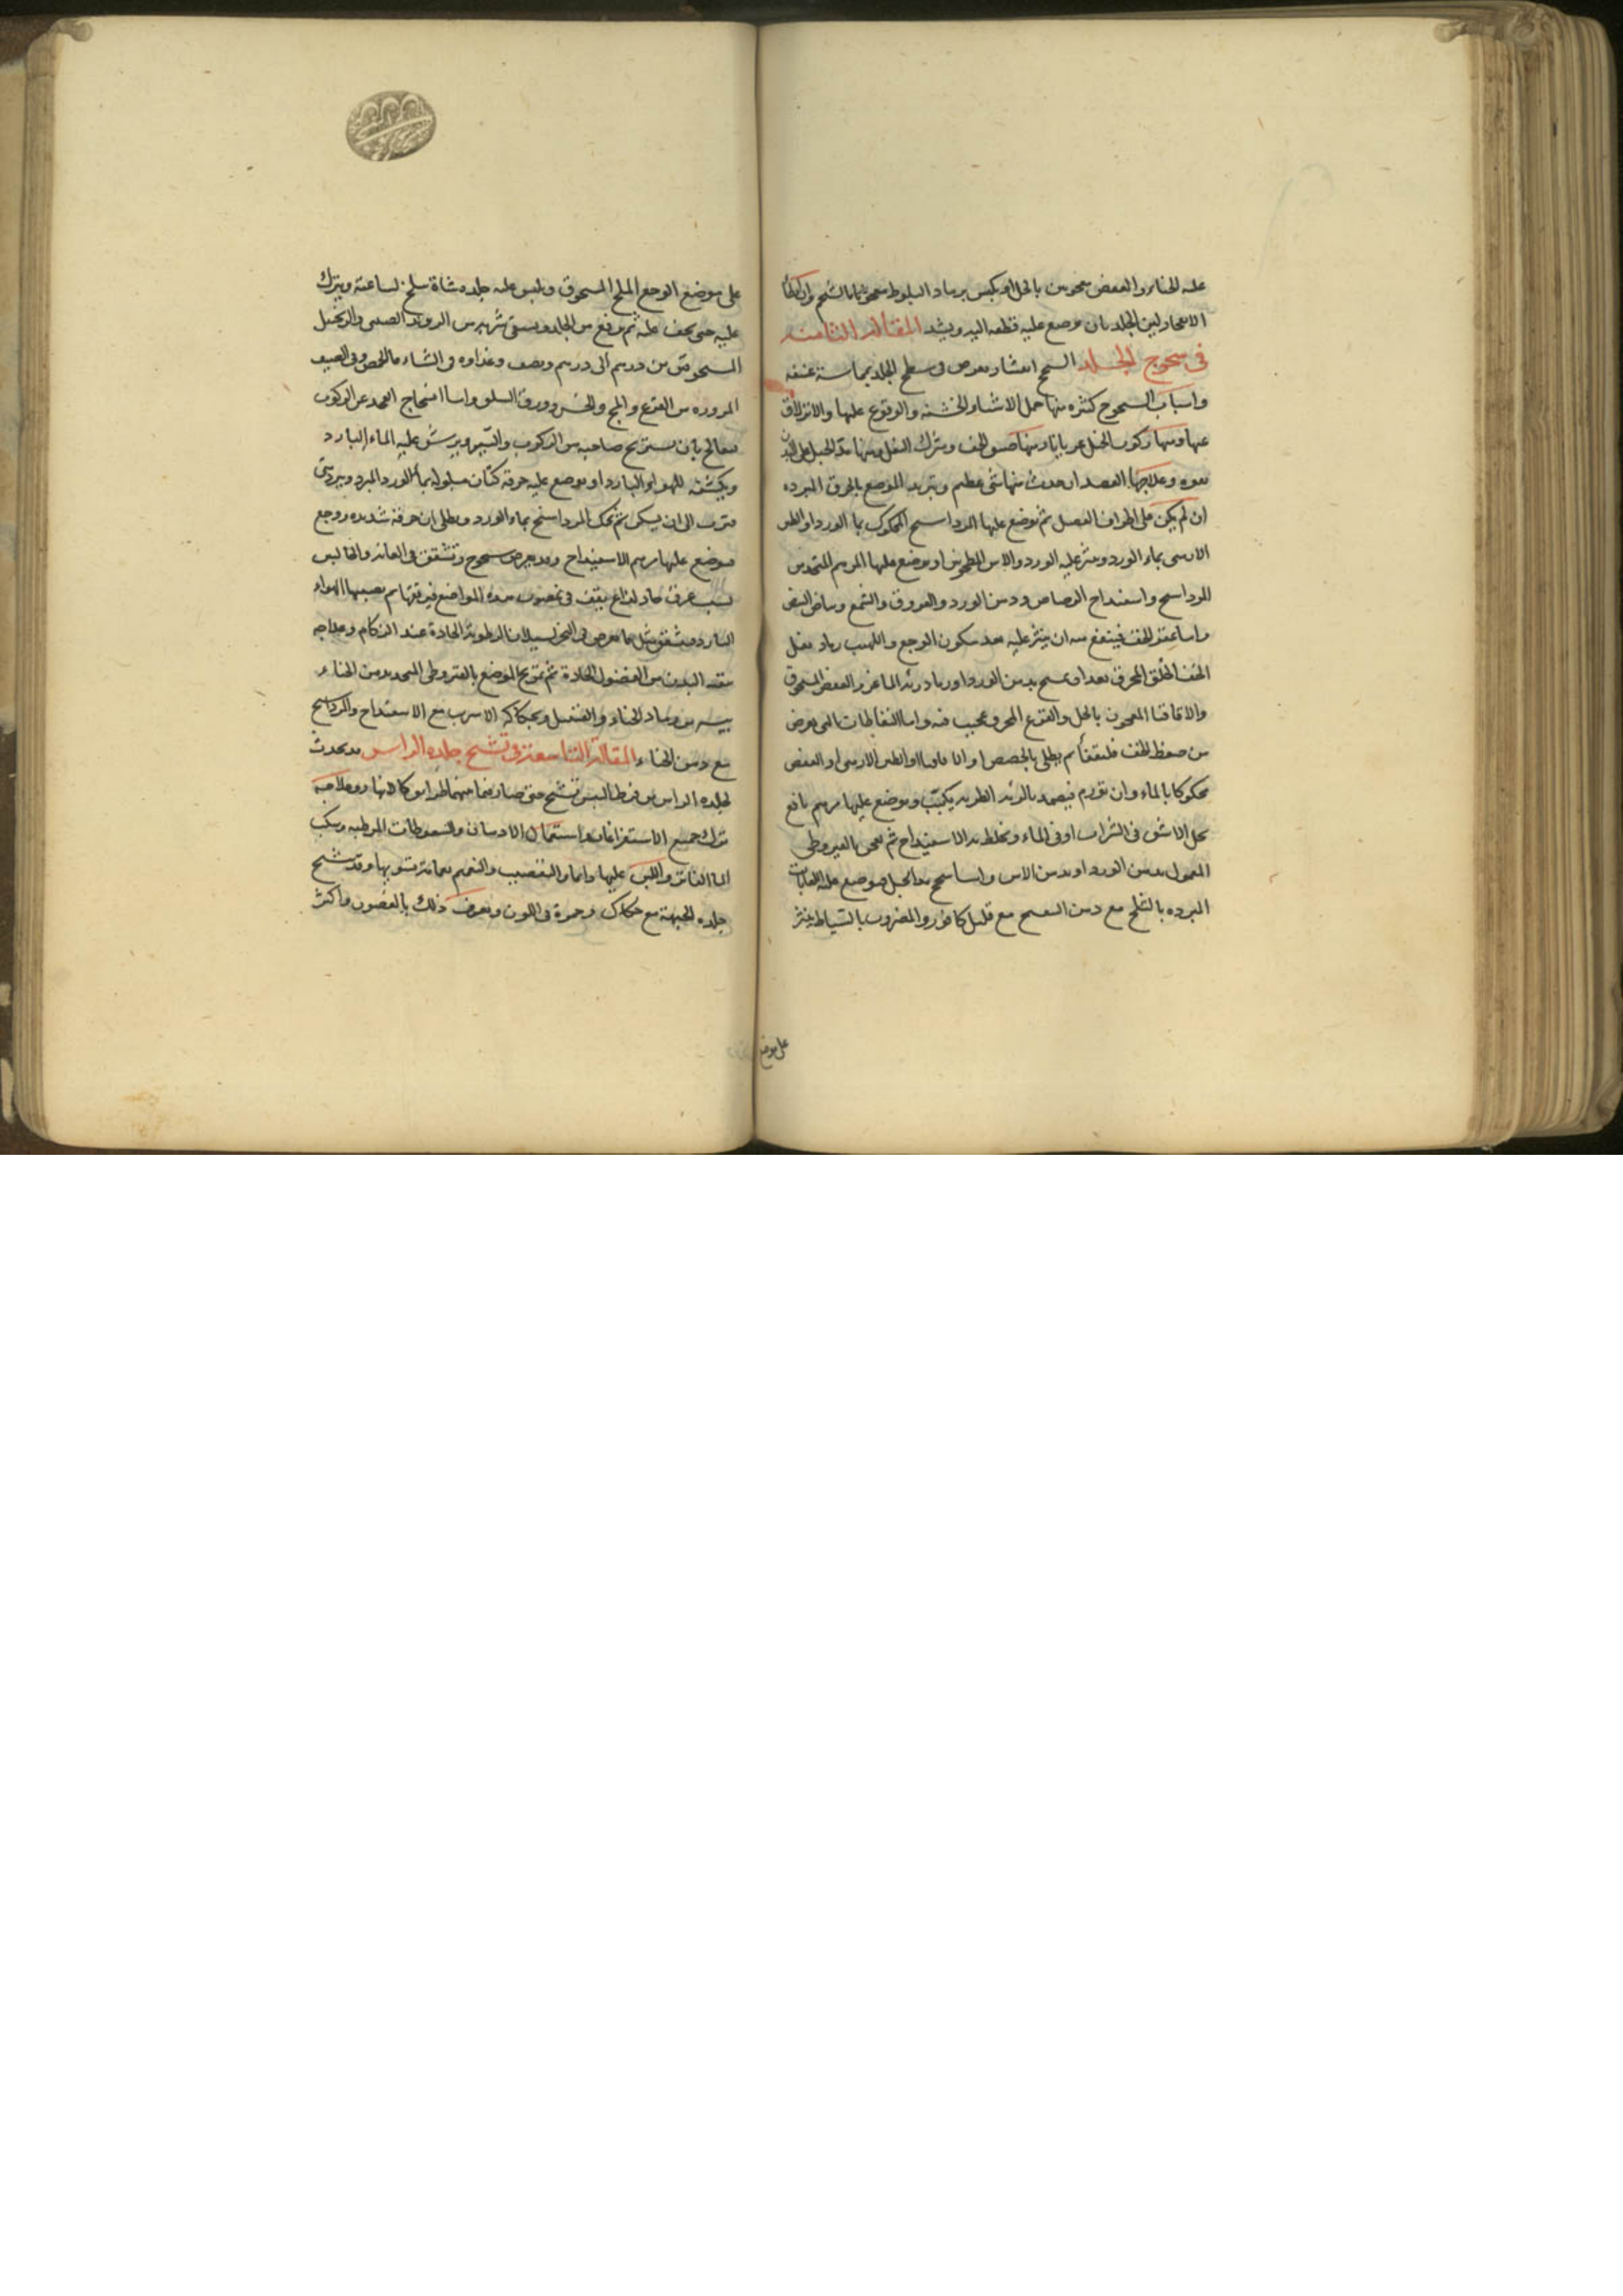 عليه الحناء والعفص معجونين بالخل او يكبس برماد البلوط معجونا بالشحم وان كان
الانفجار لين الجلد بان يوضع عليه قطعه اليه ويشد المقالة الثامنة
في سحوج الجلد السحج انقشار يعرض في سطح الجلد بمماسة عنيفه
واسباب السحوج كثيره منها حمل الاشياء الخشنه والوقوع عليها والانزلاق
عنها ومنها ركوب الخيل عريانا ومنها ضيق الخف وشراك النعل ومنها شد الحبل على البدن
بقوه وعلاجها الفصد ان حدث منها شي عظيم وتبريد الموضع بالخرق المبرده
ان لم يكن على اطراف العضل ثم يوضع عليها المرداسنج المحكوك بماء الورد او الطين
الارمني بماء الورد وينثر عليه الورد والاس المطحونين او يوضع عليها المرهم المتخذ من
المرداسنج واسفيداج الرصاص ودهن الورد والعروق والشمع وبياض البيض
واما عقر الخف فينفع منه ان ينثر عليه بعد سكون الوجع واللهيب رماد نعل
الخف الخلق المحرق بعد ان يمسح بدهن الورد او رماد رئة الماعز والعفص المسحوق
والاقاقيا المعجون بالخل والقرع المحرق عجيب فيه واما النفاخات التي تعرض
من ضغط الخف فليفقأ ثم يطلى بالحضض او اقاقيا او الطين الارمني او العفص
محكوكا بالماء وان تورم فيضمد بالرئه الطريه يكبب ويوضع عليها مرهم نافع
يحل الاشق في الشراب او في الماء ويخلط به الاسفيداج ثم يعجن بالقيروطي
المعمول بدهن الورد او بدهن الاس واما سحج شد الحبل فيوضع عليه اللعابات
المبرده بالثلج مع دهن البنفسج مع قليل كافور والمضروب بالسياط ينثر
على موضع
على موضع الوجع الملح المسحوق ويلبس عليه جلده شاة سلخ لساعته ويترك
عليه حتى يجف عليه ثم يرفع من الجلد ويسقى شربه من الروند الصيني والزنجبيل
المسحوقين من درهم الى درهم ونصف وغذاوه في الشتاء ماء الحمص وفي الصيف
المزوره من القرع والمج والخس وورق السلق واما انسحاج الفخذ عن الركوب
فيعالج بان يستريح صاحبه من الركوب والسير ويرش عليه الماء البارد
ويكشف للهواء البارد او يوضع عليه خرقه كتان مبلوله بماء الورد المبرد ويرد متى
فترت الى ان يسكن ثم يحك المرداسنج بماء الورد ويطلى ان حرقة شديده ووجع
فيوضع عليها مرهم الاسفيداج وقد يعرض سحوج وتشقق في العانة والحالبين
بسبب عرق حاد لذاع يقف في غضون هذه المواضع فيرققها ثم يصيبها الهواء
البارد فيتشقق مثل ما يعرض في المنخر لسيلان الرطوبة الحادة عند الزكام وعلاجه
تنقية البدن من الفضول الحادة ثم تمريخ الموضع بالقيروطي المتخذ بدهن الحناء
بيسير من رماد الحناء والقنبيل وبحكاكه الاسرب مع الاسفيداج والمرداسنج
مع دهن الحناء المقالة التاسعة في تشنج جلدة الراس قد يحدث
لجلده الراس من فرط اليبس تشنج حتى صار فيما بينها طرايق كالانهار وعلاجه
ترك جميع الاستفراغات واستعمال الادهان والسعوطات المرطبه وسكب
الماء الفاتر واللبن عليها دائما والتعصيب والتعميم بعمامة تسويها وقد تتشنج
جلده الجبهة مع حكاك وحمرة في اللون ويعرف ذلك بالغضون واكثر